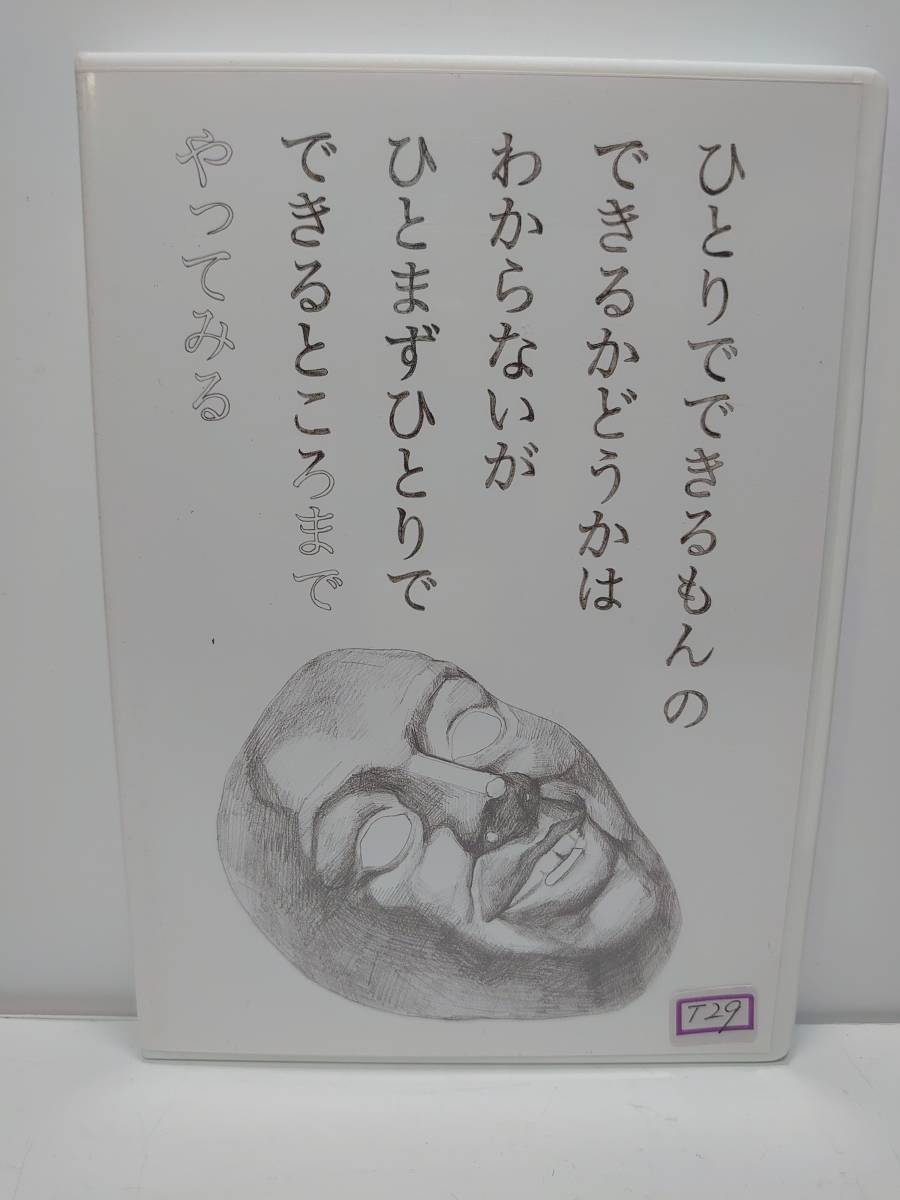 ひとりでできるもんの
できるかどうかは
わからないが
ひとまずひとりで
できるところまで
やってみる
T29